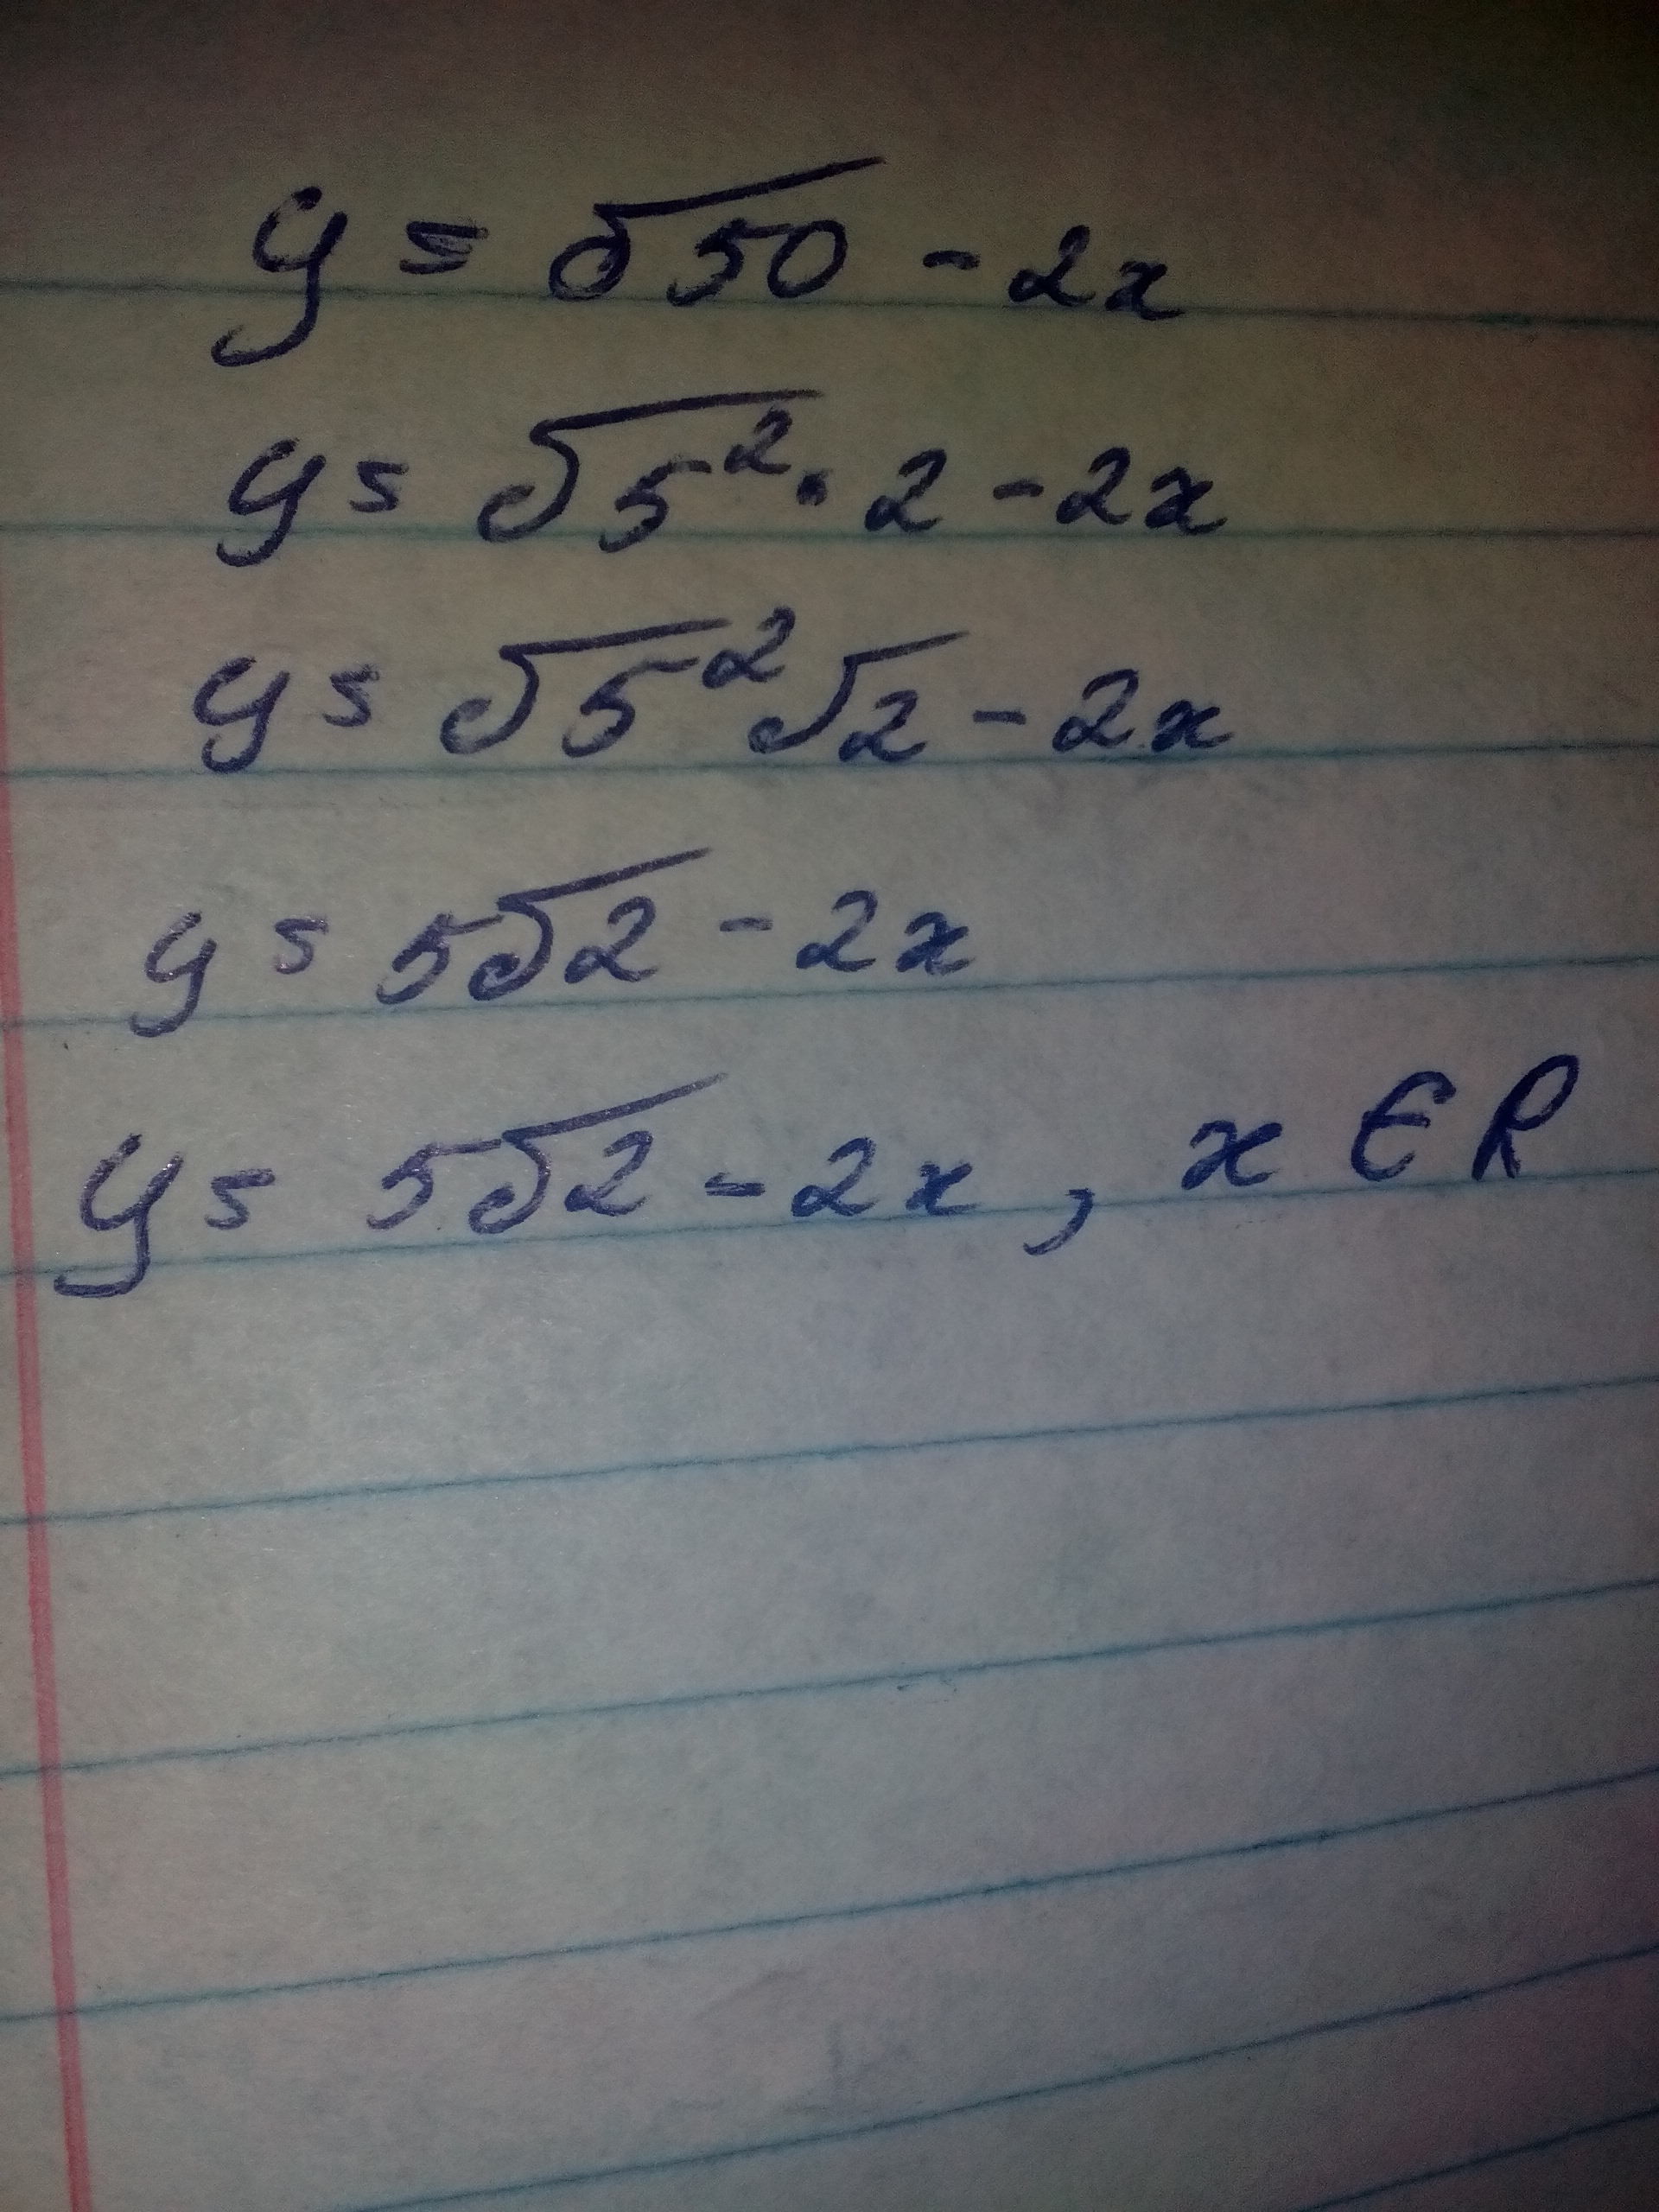 y = √50 - 2x
y = √5² · 2 - 2x
y = √5² √2 - 2x
y = 5√2 - 2x
y = 5√2 - 2x , x ∈ R